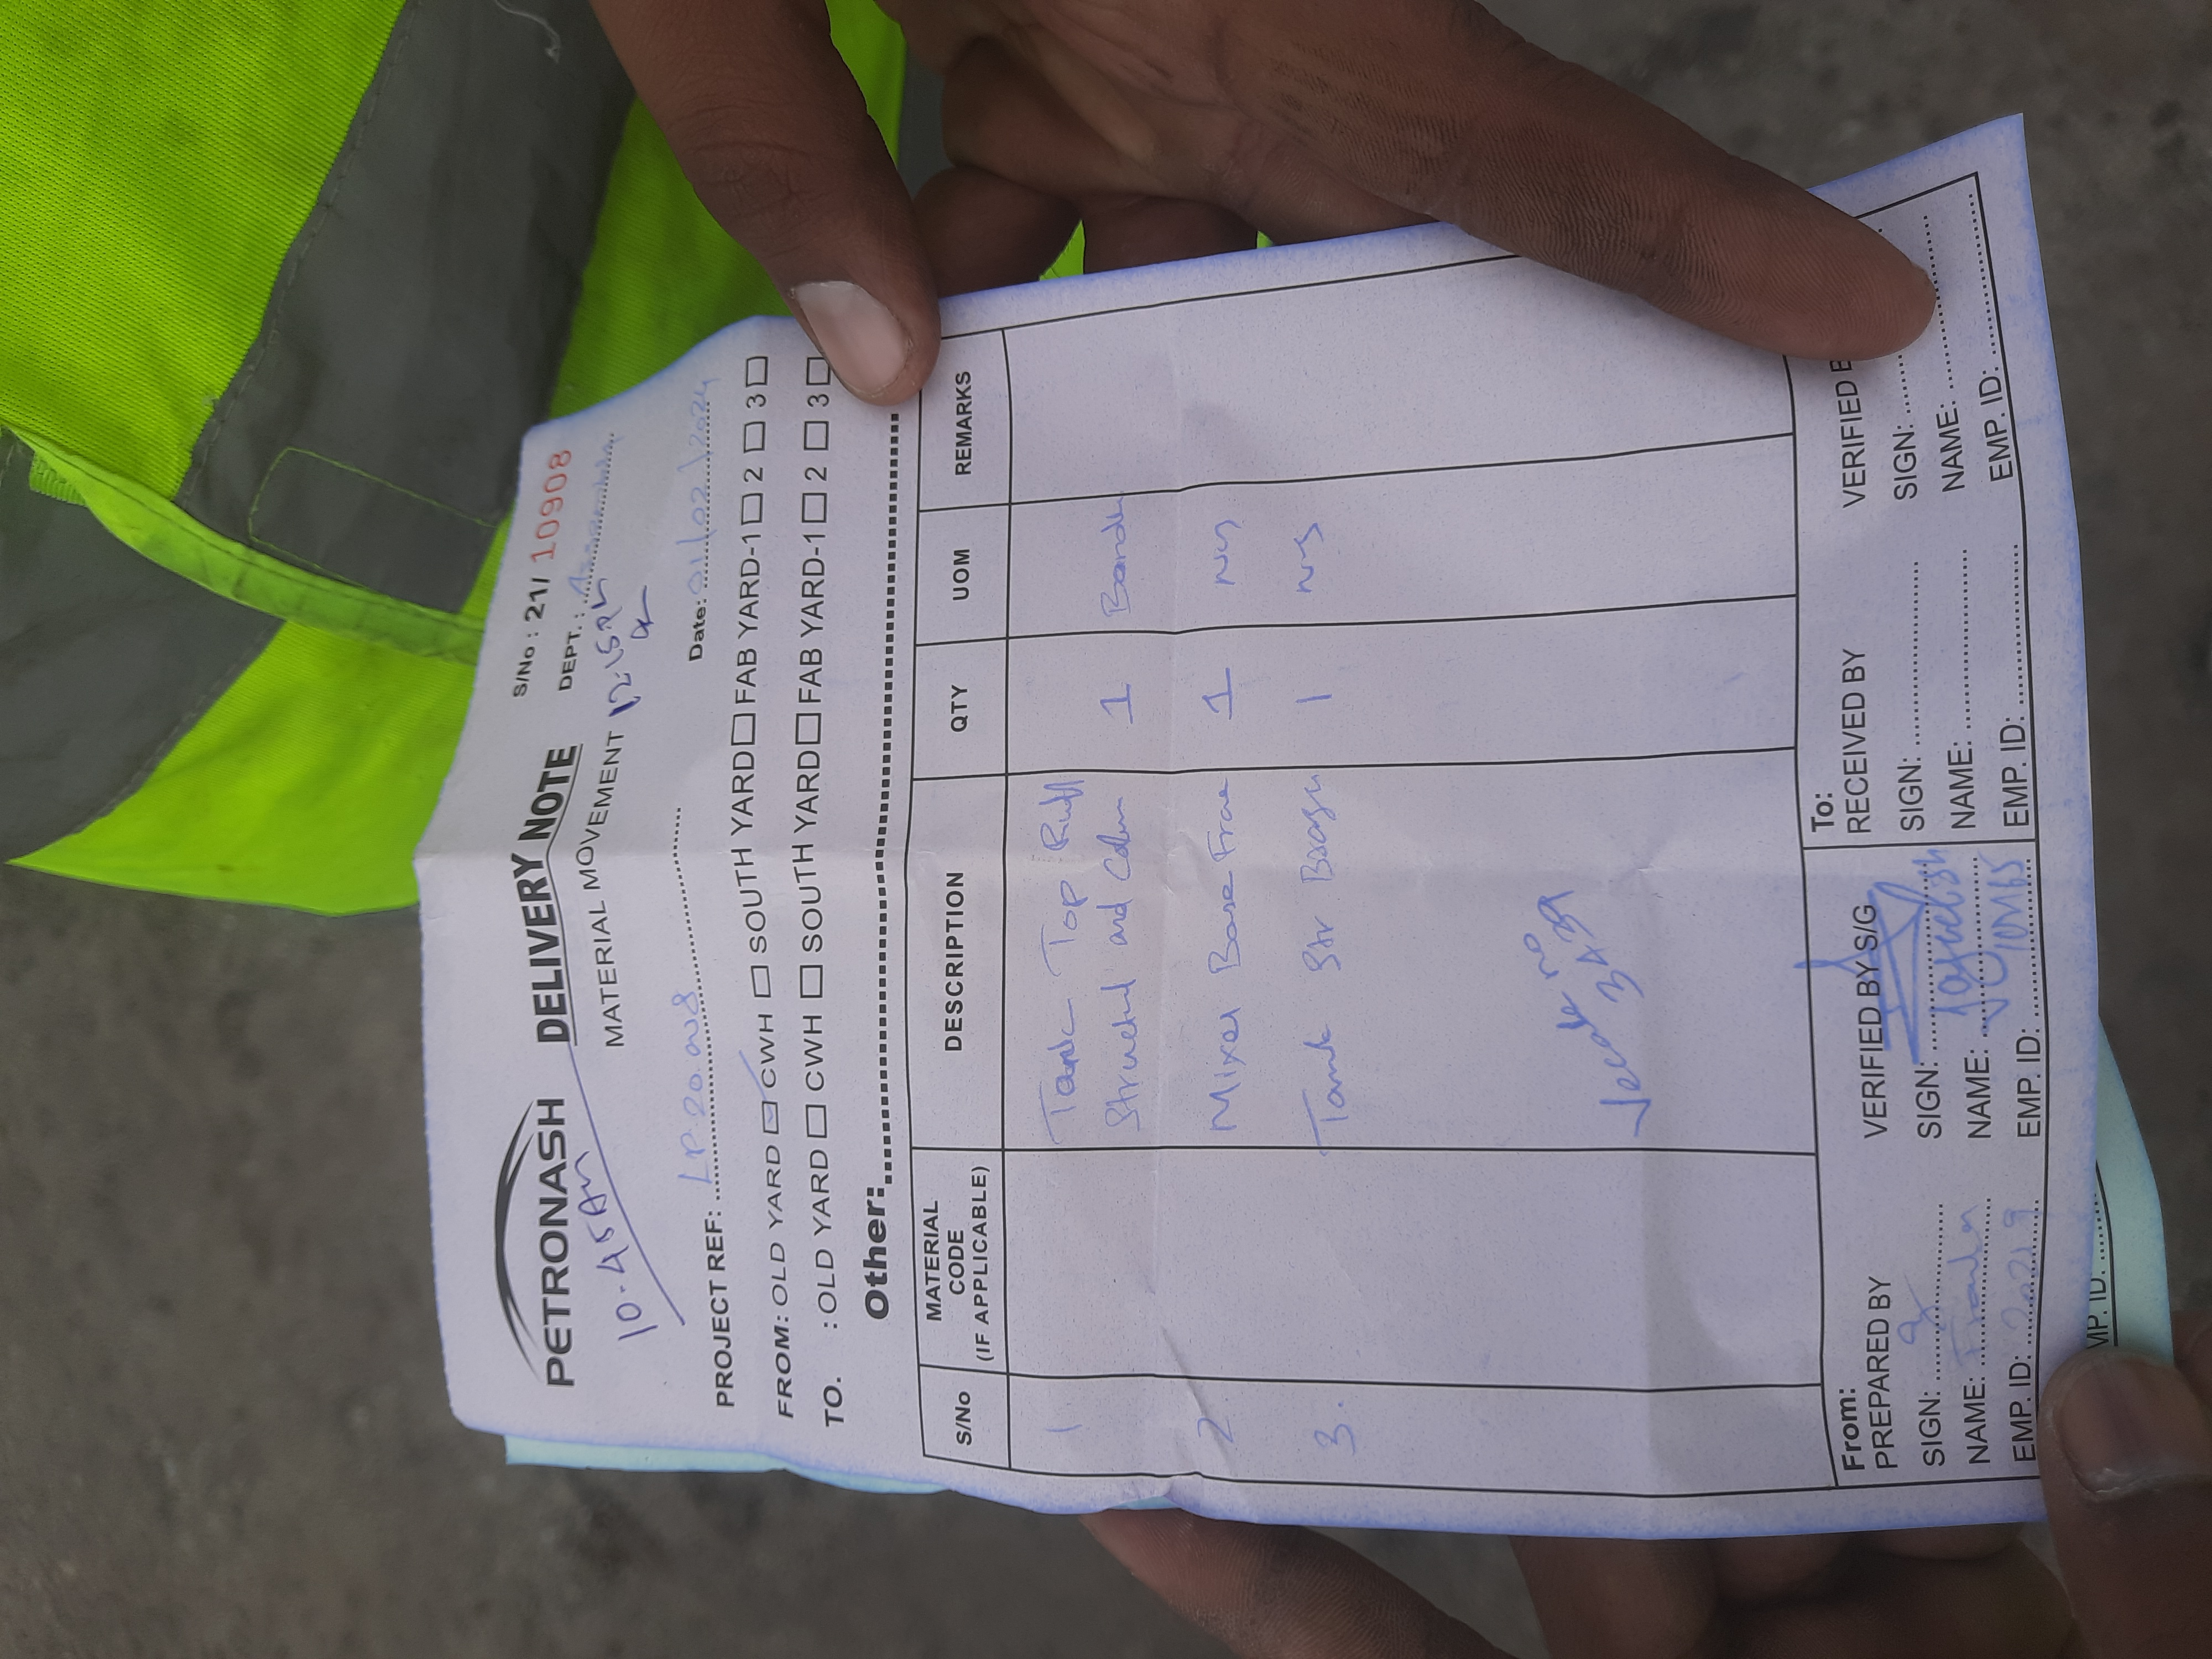 PETRONASH
DELIVERY NOTE
MATERIAL MOVEMENT
S/No : 21/ 10908
DEPT. :
10-45AM
12-15 PM
PROJECT REF:
Date: 01/02/2024
FROM: OLD YARD CWH SOUTH YARD FAB YARD-1 2 3
TO. : OLD YARD CWH SOUTH YARD FAB YARD-1 2 3
Other:
S/No MATERIAL CODE (IF APPLICABLE) DESCRIPTION QTY UOM REMARKS
1 Tank Top
and 1
2. Mixer Base 1
3. Tank Str 1
no
3439
From:
PREPARED BY
SIGN:
NAME:
EMP. ID:
VERIFIED BY S/G
SIGN:
NAME:
EMP. ID:
To:
RECEIVED BY
SIGN:
NAME:
EMP. ID:
VERIFIED B
SIGN:
NAME:
EMP. ID:
MP. ID: